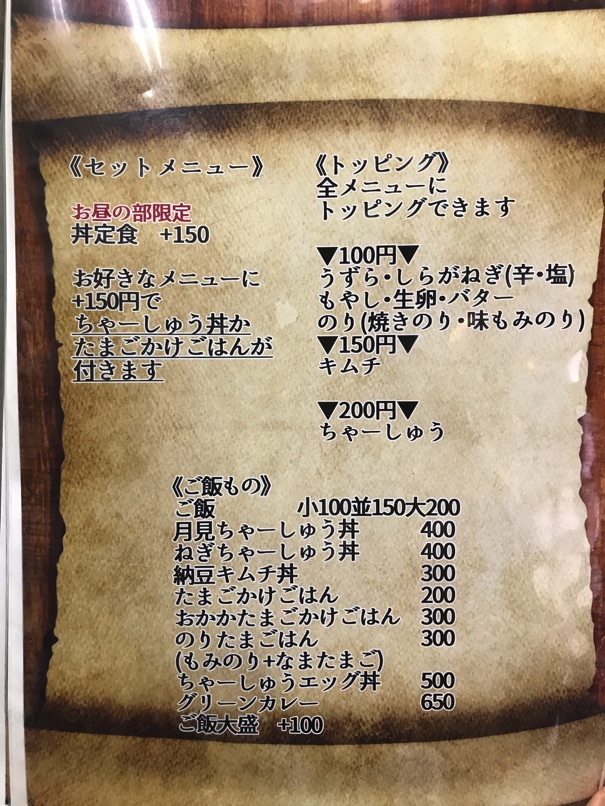 《セットメニュー》
お昼の部限定
丼定食 +150
お好きなメニューに
+150円で
ちゃーしゅう丼か
たまごかけごはんが
付きます
《トッピング》
全メニューに
トッピングできます
▼100円▼
うずら・しらがねぎ(辛・塩)
もやし・生卵・バター
のり(焼きのり・味もみのり)
▼150円▼
キムチ
▼200円▼
ちゃーしゅう
《ご飯もの》
ご飯 小100並150大200
月見ちゃーしゅう丼 400
ねぎちゃーしゅう丼 400
納豆キムチ丼 300
たまごかけごはん 200
おかかたまごかけごはん 300
のりたまごはん 300
(もみのり+なまたまご)
ちゃーしゅうエッグ丼 500
グリーンカレー 650
ご飯大盛 +100